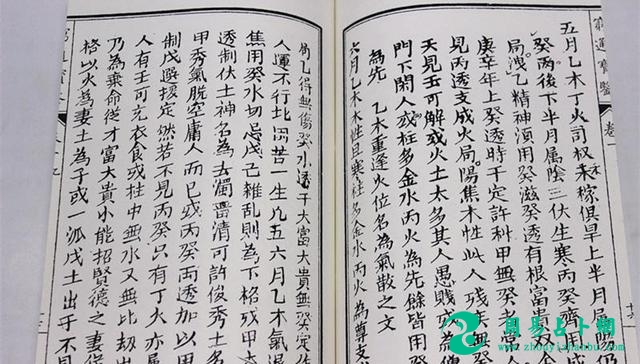 窮通寶鑒 卷一
五月乙木丁火司权禾稼俱旱上半月屬陽仍
癸丙後下半月屬陰三伏生寒丙癸齊
局洩乙精神湏用癸滋癸透有根富貴
庚辛年上癸透時干定許科甲無癸者常
見丙透支成火局陽焦木性此人殘疾無
天見壬可解或火土太多其人愚賤或
門下閑人或柱多金水丙火為先餘皆用
為先 乙木重逢火位名為氣散之文
六月乙木木性且寒柱多金水丙火為尊支
局乙得無傷癸水透干大富大貴無癸定
人運不行北困苦一生凡五六月乙木氣
焦用癸水切忌戊己雜亂則為下格殘甲
透制伏土神名為去濁畱清可許俊秀土
甲秀氣脫空庸人而已或丙癸两透加以
制戊選援定然若不見丙癸只有丁火亦屬
人有壬可充衣食或柱中無水又無比劫出
乃為棄命從才富大貴小能招賢德之妻從
格以火為妻土為子或一派戊土出干不見
周易占卜網